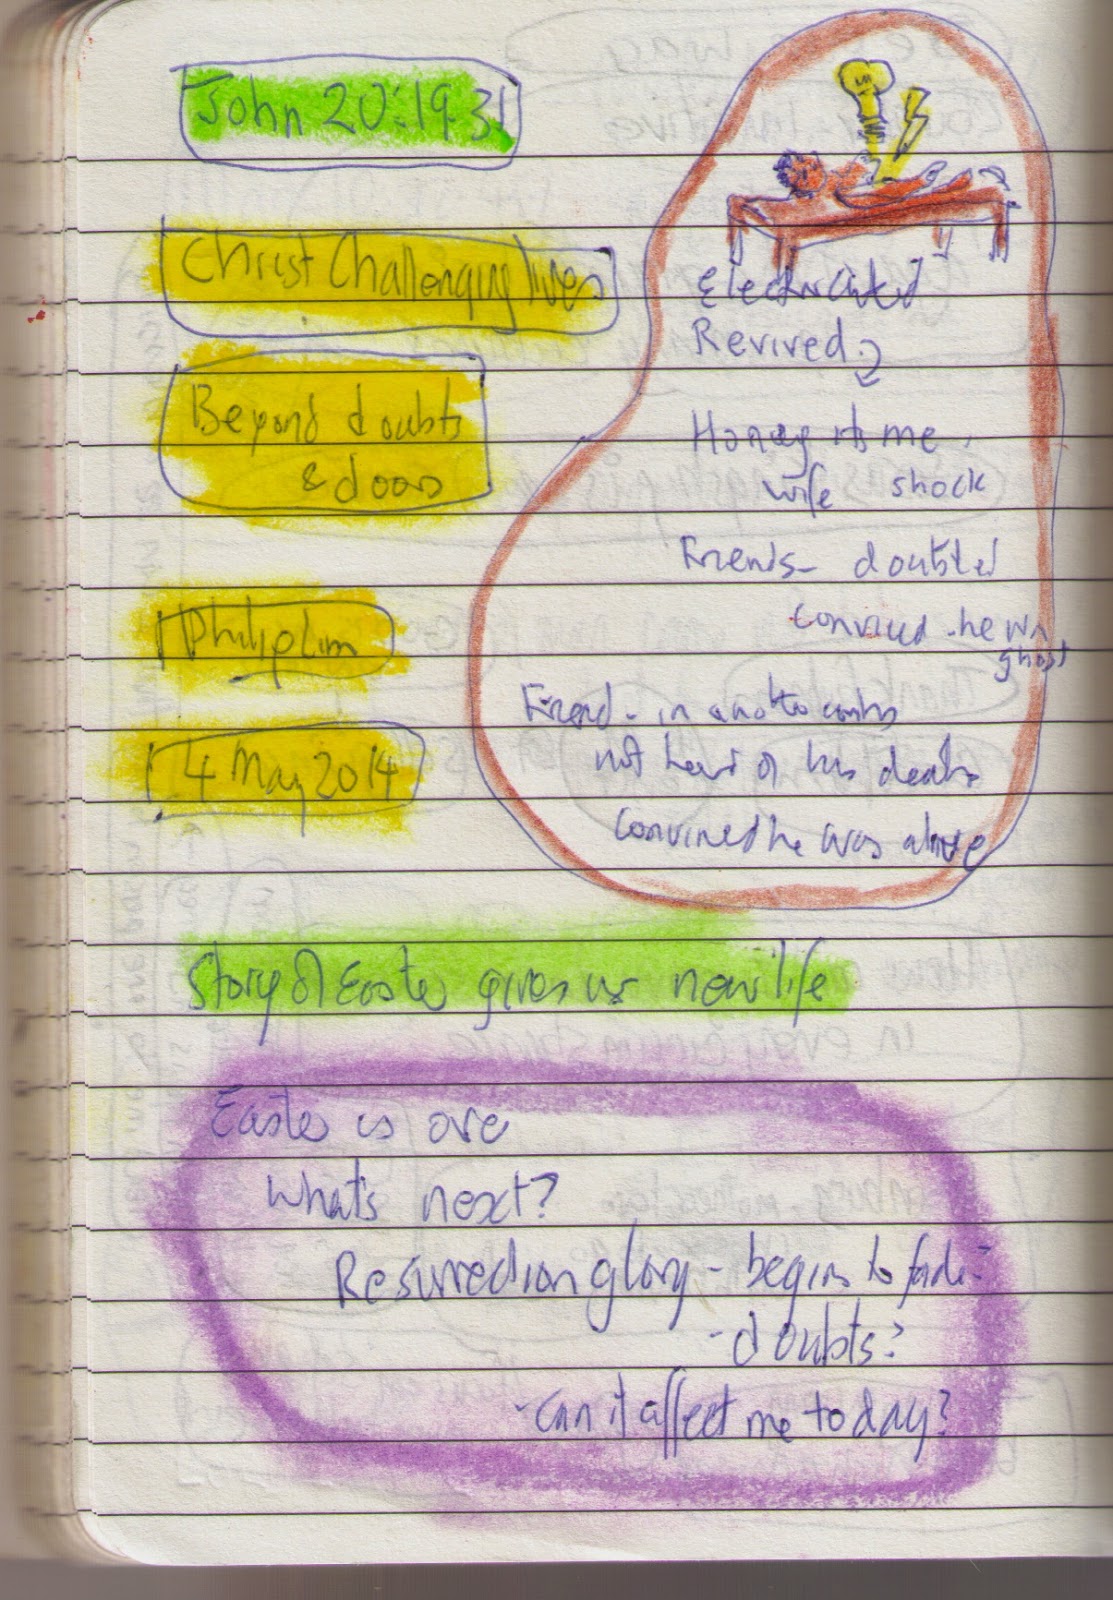 John 20:19-31
Christ Challenging lives
Beyond doubts
& doors
Philip Lim
4 May 2014
Electrocuted
Revived
Home
wife shock
Friends- doubted
convinced -he was
ghost
Friend - in another country
not heard of his death
convinced he was alive
Story of Easter gives us new life
Easter is over
What's next?
Resurrection glory - begins to fade?
-doubts?
-can it affect me today?